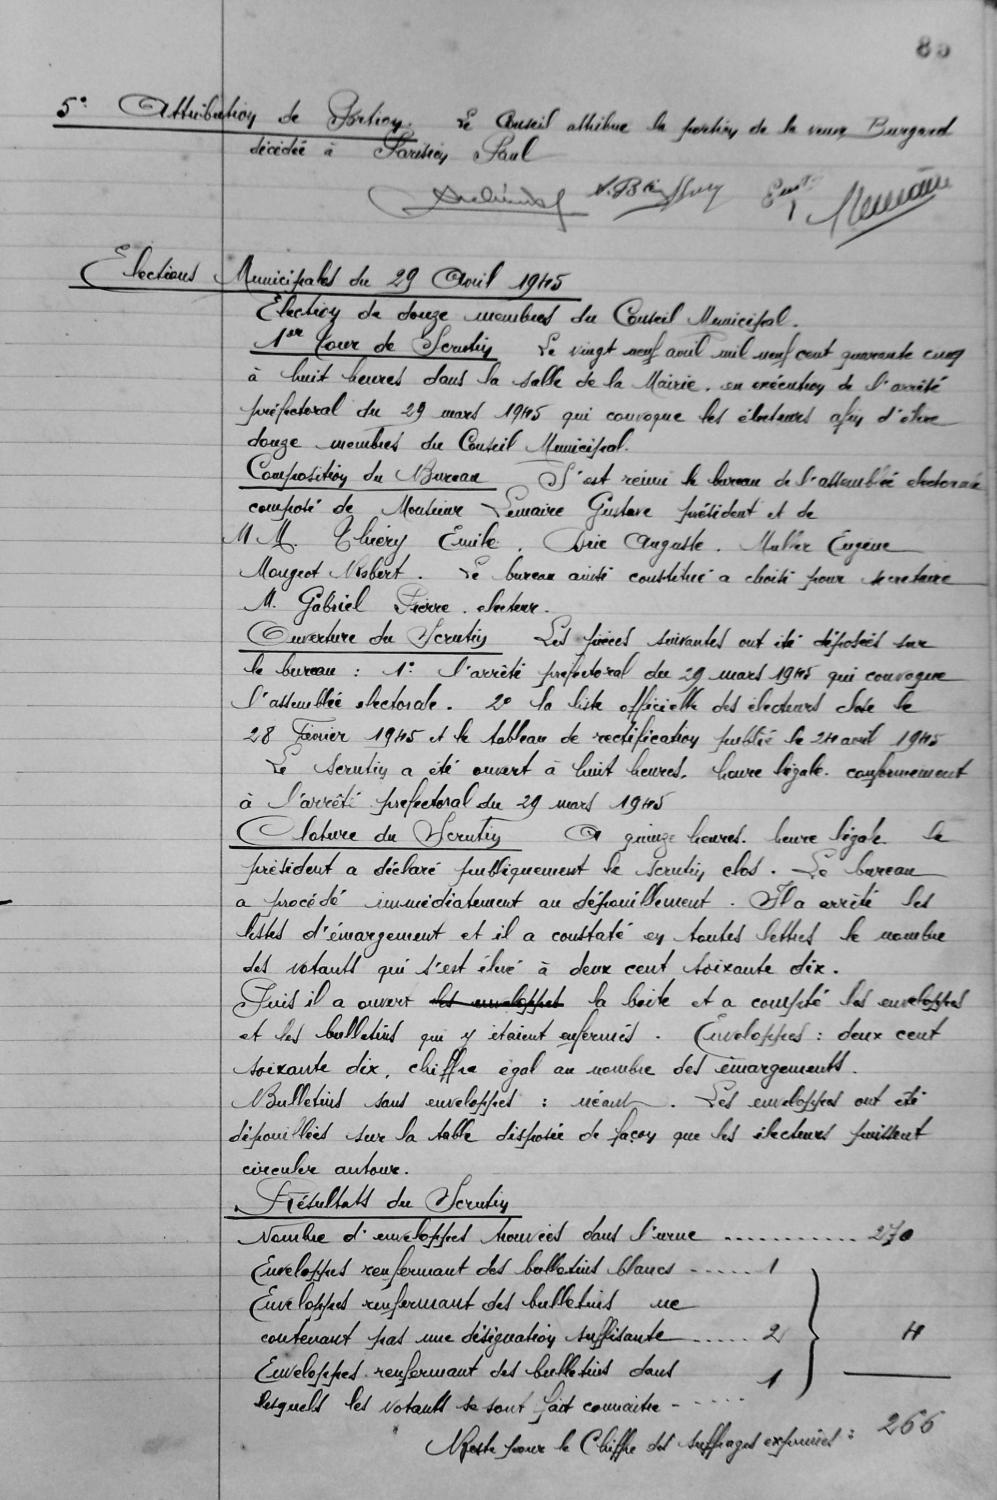 85
5° Attribution de Portion. Le Conseil attribue la portion de la veuve Burgard
décédée à Parisien Paul
Elections Municipales du 29 Avril 1945
Election de douze membres du Conseil Municipal.
1er tour de Scrutin Le vingt neuf avril mil neuf cent quarante cinq
à huit heures dans la salle de la Mairie. en exécution de l'arrêté
préfectoral du 29 mars 1945 qui convoque les électeurs afin d'élire
douze membres du Conseil Municipal.
Composition du Bureau S'est réuni le bureau de l'assemblée électorale
composé de Monsieur Lemaire Gustave président et de
M M. Thiéry Emile. Auguste. Muller Eugène
Mougeot Robert. Le bureau ainsi constitué a choisi pour secrétaire
M. Gabriel Pierre. électeur.
Ouverture du Scrutin Les pièces suivantes ont été déposées sur
le bureau : 1° l'arrêté préfectoral du 29 mars 1945 qui convoque
l'assemblée electorale. 2° la liste officielle des électeurs close le
28 Février 1945 et le tableau de rectification publié le 24 avril 1945
Le scrutin a été ouvert à huit heures. heure légale. conformement
à l'arrêté prefectoral du 29 mars 1945
Cloture du Scrutin A quinze heures. heure légale le
président a déclaré publiquement le scrutin clos. Le bureau
a procédé immédiatement au dépouillement. Il a arrêté les
listes d'émargement et il a constaté en toutes lettres le nombre
des votants qui s'est élevé à deux cent soixante dix.
Puis il a ouvert les enveloppes la boite et a compté les enveloppes
et les bulletins qui y étaient enfermés. Enveloppes : deux cent
soixante dix, chiffre égal au nombre des émargements.
Bulletins sans enveloppes : néant. Les enveloppes ont été
dépouillées sur la table disposée de façon que les électeurs puissent
circuler autour.
Résultats du Scrutin
Nombre d'enveloppes trouvées dans l'urne ............ 270
Enveloppes renfermant des bulletins blancs ..... 1
Enveloppes renfermant des bulletins ne
contenant pas une désignation suffisante ..... 2 4
Enveloppes renfermant des bulletins dans 1
lesquels les votants se sont fait connaitre .....
Reste pour le Chiffre des suffrages exprimés : 266